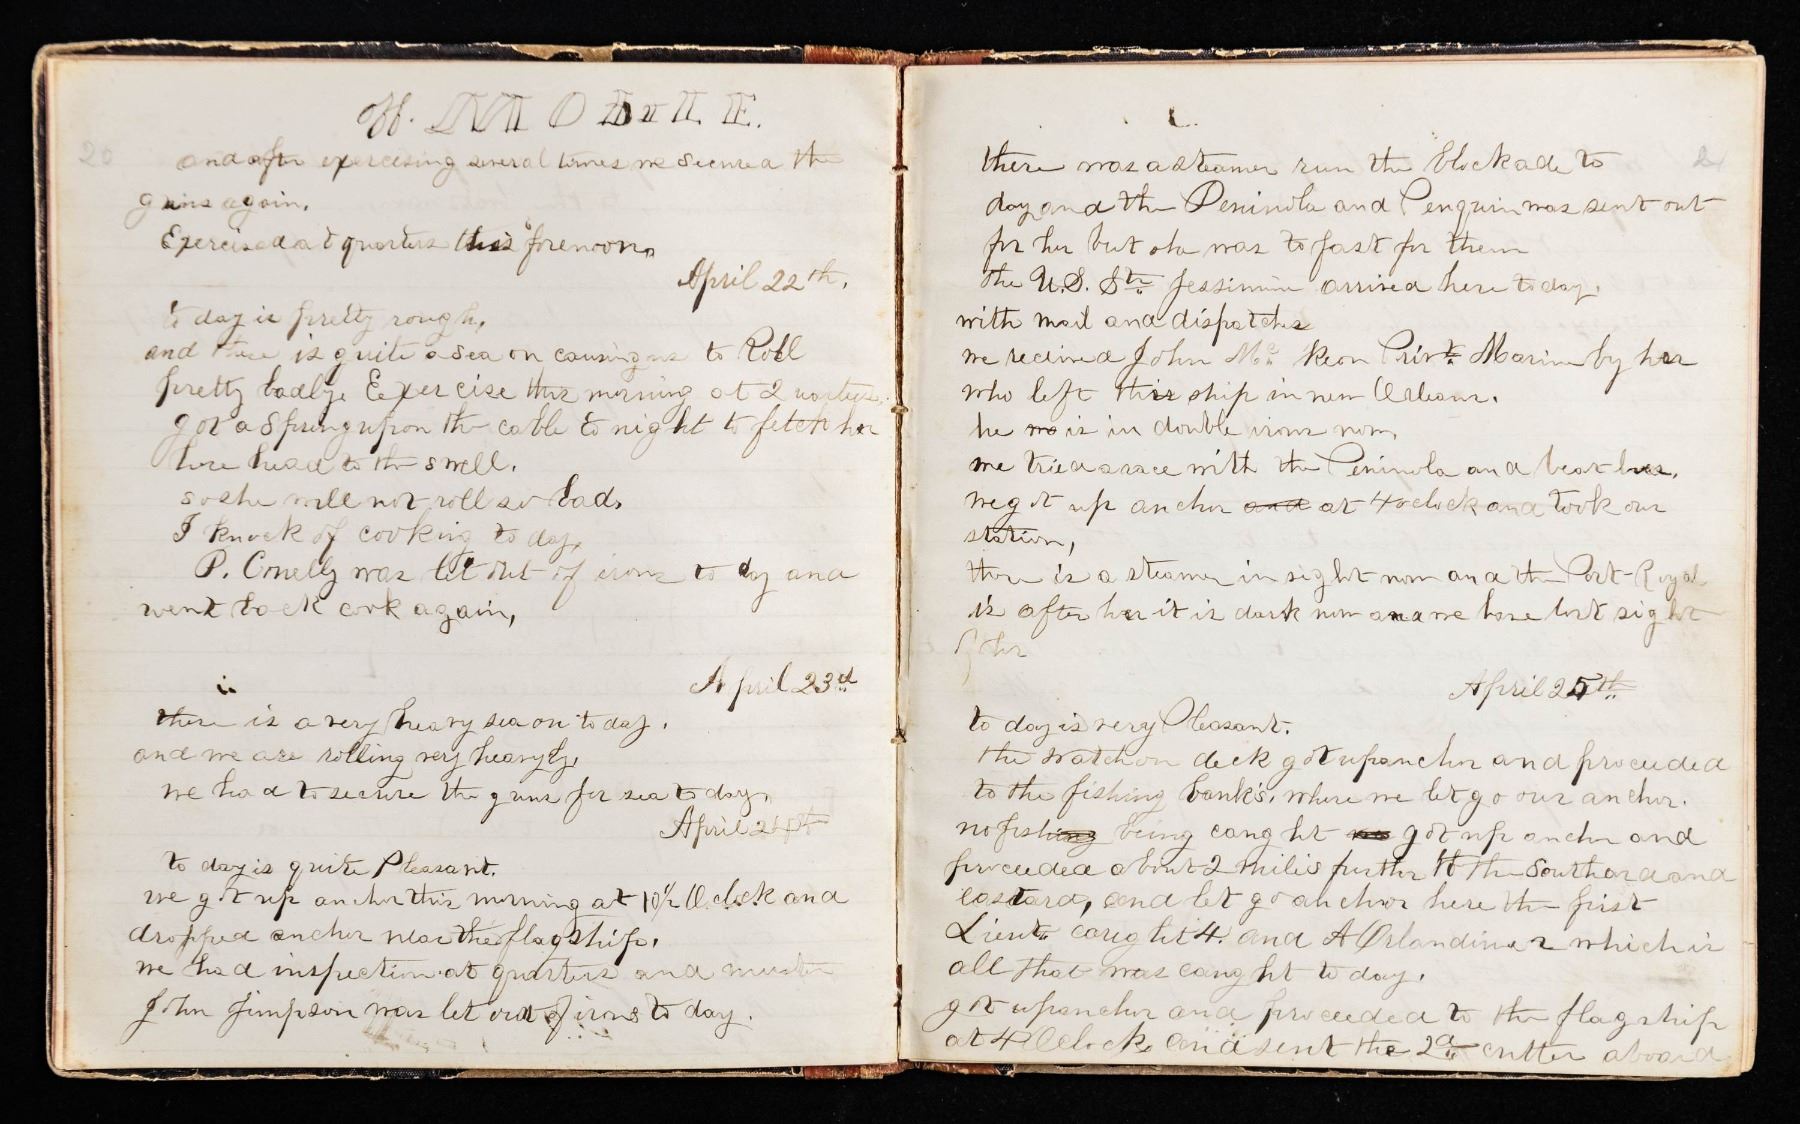 Off. MOBILE.
20
and after exercising several times we secured the
guns again.
Exercised at quarters this forenoon.
April 22th.
to day is pretty rough.
and there is quite a sea on causing us to Roll
pretty badly. Exercise this morning at 2
got a Spring upon the cable to night to fetch her
here head to the swell.
so she will not roll so bad.
I knock of cooking to day.
P. Conelly was let out of irons to day and
went back cook again,
April 23d
there is a very heavy sea on to day.
and we are rolling very heavyly.
we had to secure the guns for sea to day.
April 24th
to day is quite Pleasant.
we got up anchor this morning at 10½ O.clock and
dropped anchor near the flag ship.
we had inspection at quarters and muster
John Simpson was let out of irons to day.
21
there was a steamer run the blockade to
day and the Peninola and Penguin was sent out
for her but she was to fast for them
the U.S. Str. Jessimine arrived here to day.
with mail and dispatches
we recived John Mc. Keon Privt. Marine by her
who left this ship in new Orleans.
he is in double irons now.
we tried a race with the Peninola and beat her.
we got up anchor and at 4 oclock and took our
station,
there is a steamer in sight now and the Port-Royal
is after her it is dark now and we have lost sight
of her
April 25th
to day is very Pleasant.
the watch on deck got up anchor and proceeded
to the fishing banks. where we let go our anchor.
no fishing being caught got up anchor and
proceeded about 2 milis further to the Southard and
eastard, and let go anchor here the first
Lieut. caught 4. and A Orlandine 2 which is
all that was caught to day.
got up anchor and proceeded to the flag ship
at 4 Oclock. and sent the 2d cutter aboard